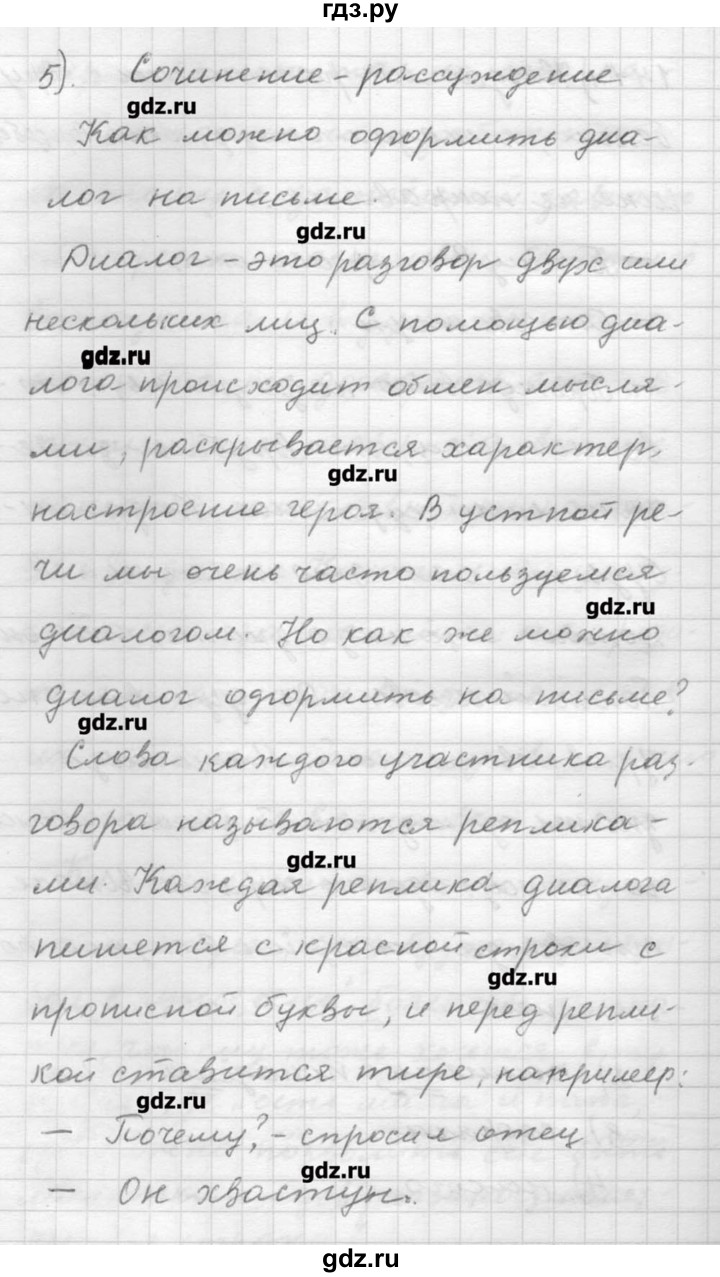 гдз.ру
5). Сочинение - рассуждение
gdz.ru
Как можно оформить диа-
лог на письме.
gdz.ru
Диалог - это разговор двух или
нескольких лиц. С помощью диа-
gdz.ru
лога происходит обмен мысля-
ми, раскрывается характер,
gdz.ru
настроение героя. В устной ре-
чи мы очень часто пользуемся
gdz.ru
диалогом. Но как же можно
диалог оформить на письме?
gdz.ru
Слова каждого участника раз-
говора называются реплика-
gdz.ru
ми. Каждая реплика диалога
пишется с красной строки с
gdz.ru
прописной буквы, и перед репли-
кой ставится тире, например:
gdz.ru
— Почему? - спросил отец
gdz.ru
— Он хвастун.
gdz.ru